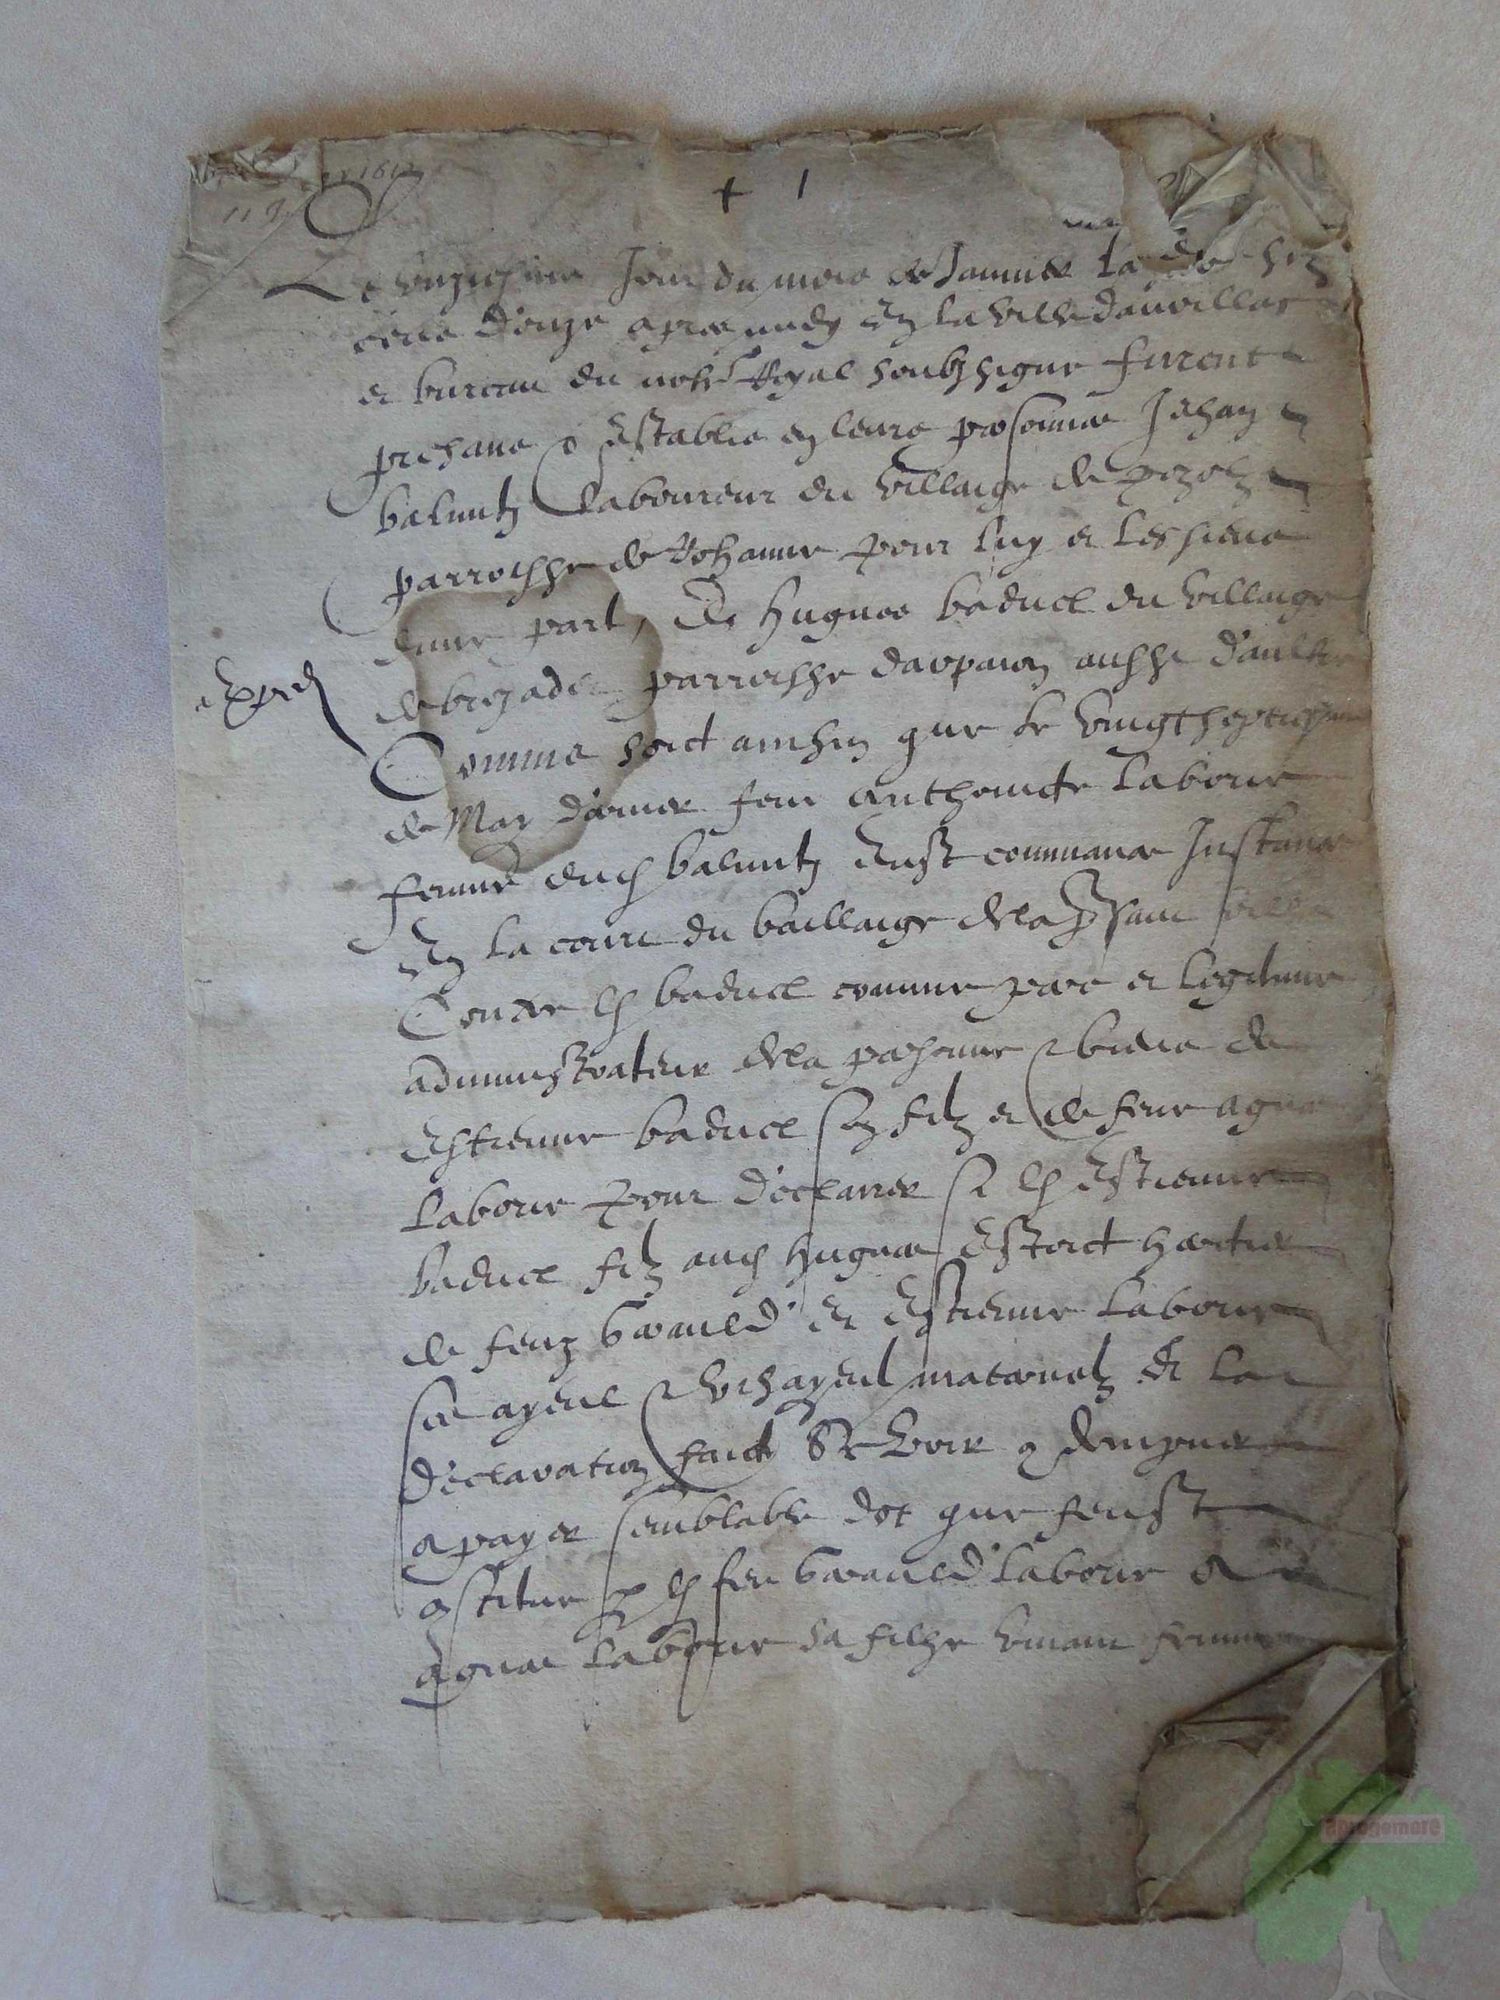 1612
119
+ 1
Le unziesme Jour du mois de Janvier
cens douze apres midy En la ville daurillac
et bureau du nore Royal soubzsigne furent
presans & Establis en leurs personnes Jehan
baluntz laboureur du villaige de
parroisse de pour luy et les siens
dune part, Et hugues baduel du villaige
de parroisse darpaion aussi daultre
expeď
Comme soict ainsin que le vingtseptiesme
de May dernier feue anthoinette Laborie
femme duď baluntz Eust commance Instance
En la court du bailliaige de la pnt ville
Contre leď baduel comme pere et legitime
administrateur de la personne & biens de
Estienne baduel son filz et de feue agnes
Laborie pour declarer si leď Estienne
baduel filz aud hugues Estoict heritier
de feuz Gerauld Et Estienne Laborie
ses ayeul & bisayeul maternelz Et la
declaration faicte Se voir condempner
a payer semblable dot que feust
constitue par leď feu Gerauld laborie a
agnes Laborie sa filhe vivant femme
aprogemere